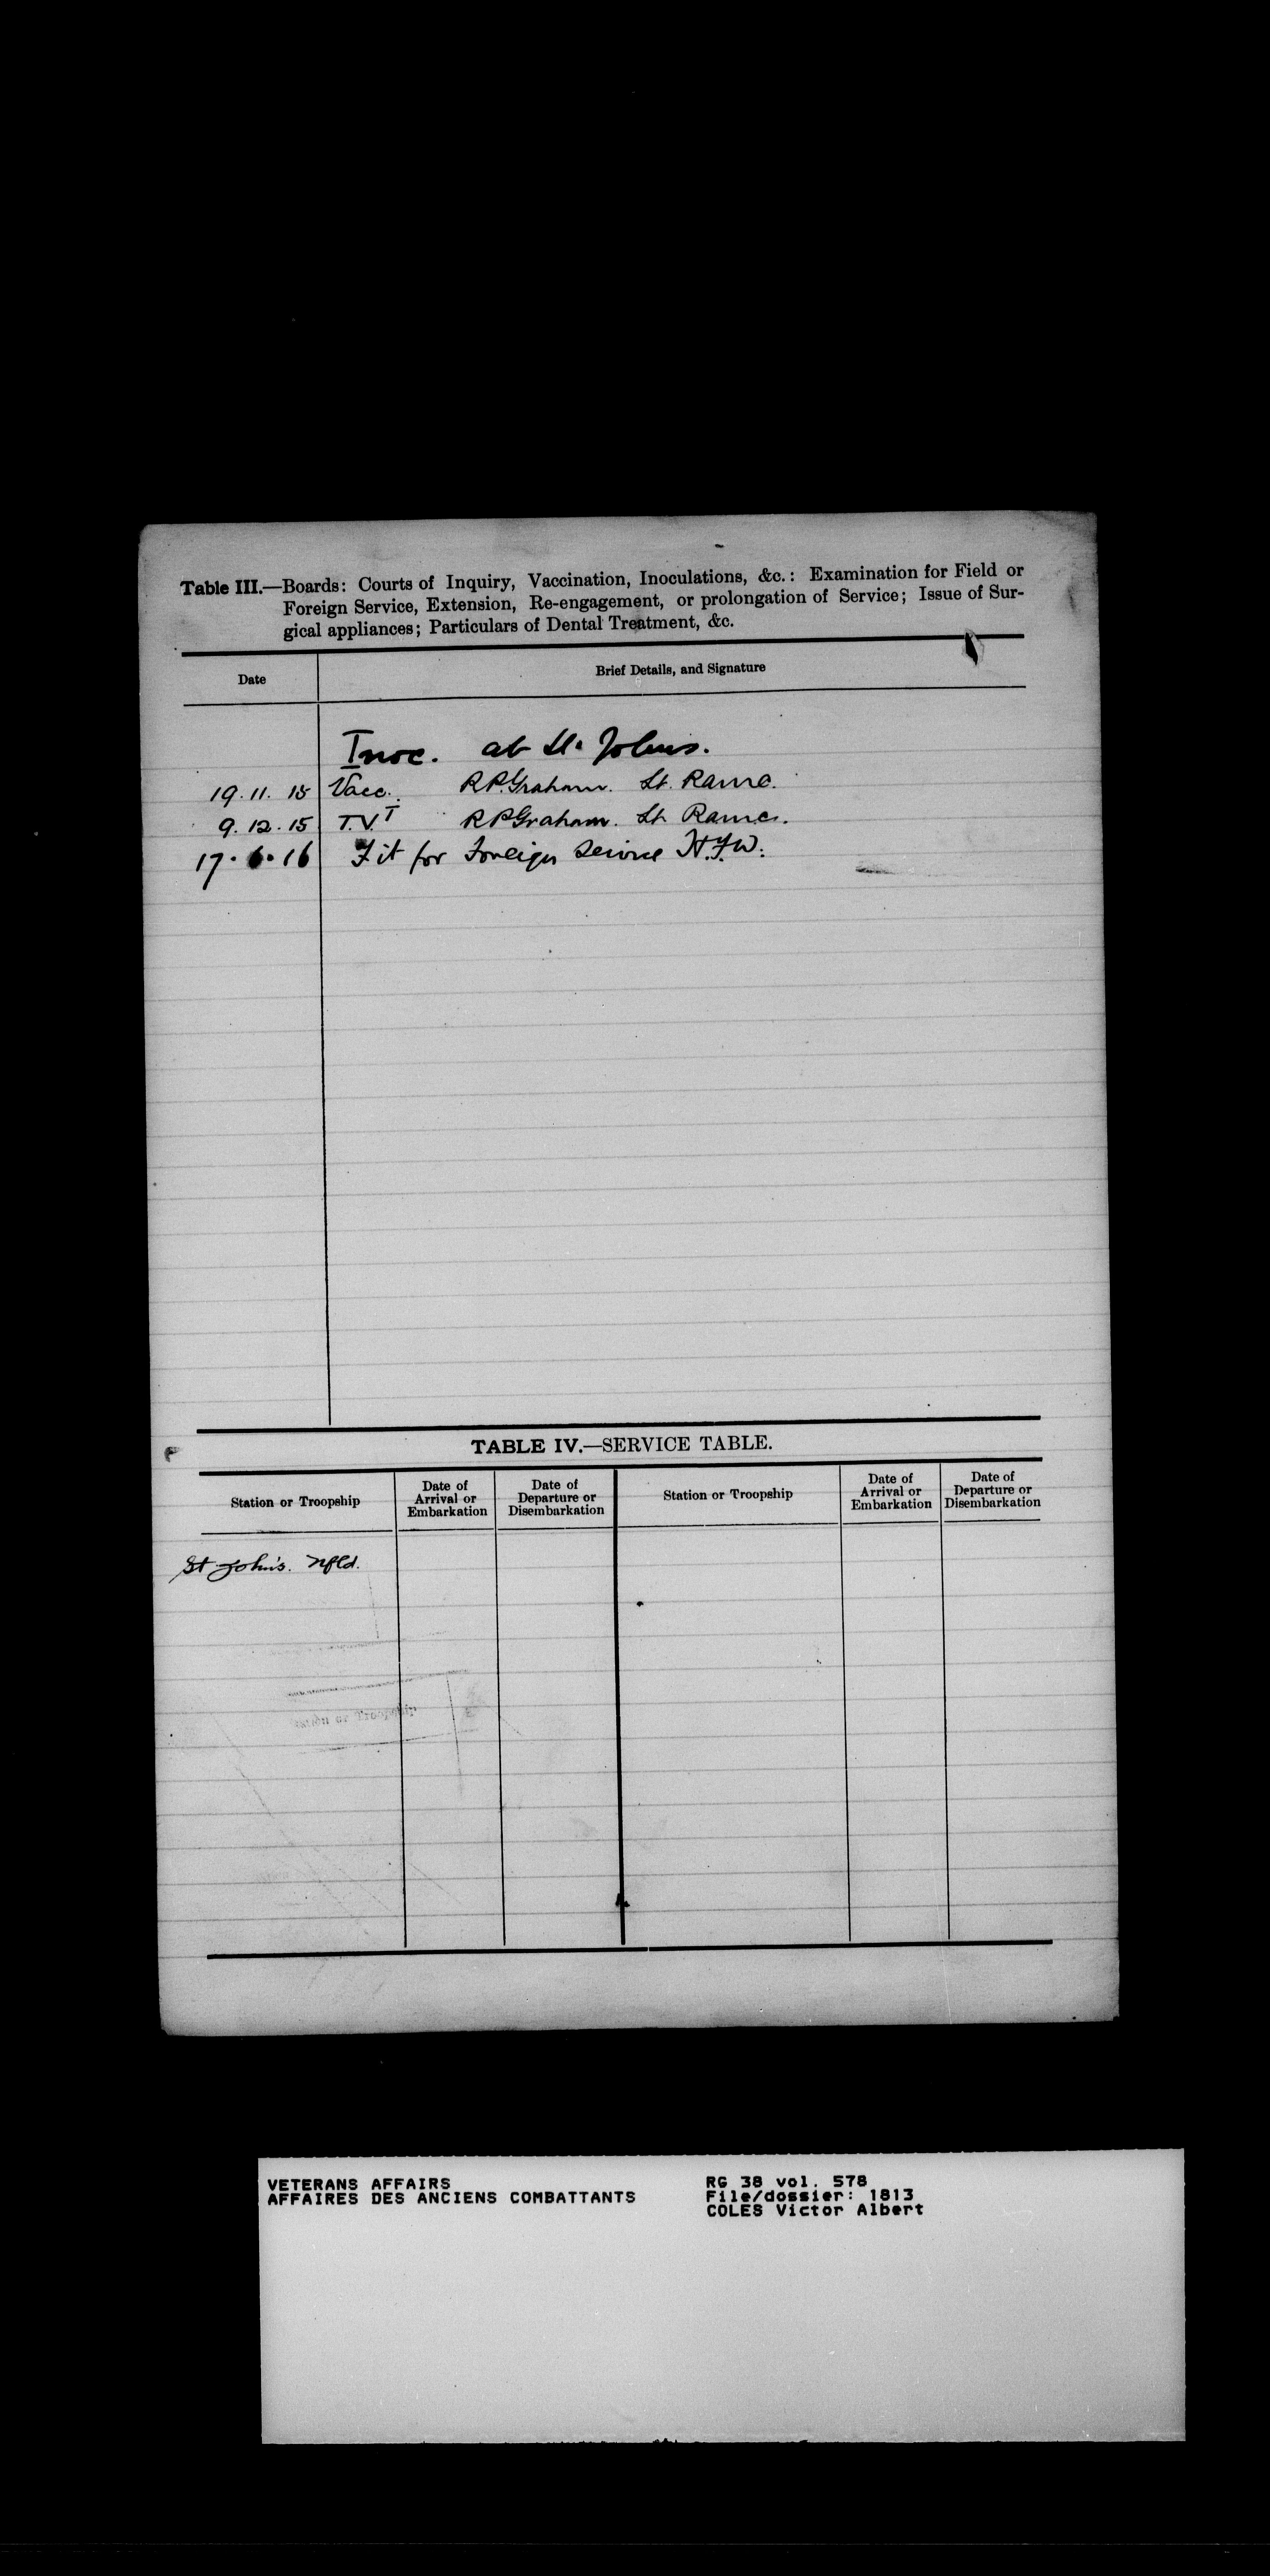 Table III.—Boards: Courts of Inquiry, Vaccination, Inoculations, &c.: Examination for Field or
Foreign Service, Extension, Re-engagement, or prolongation of Service; Issue of Sur-
gical appliances; Particulars of Dental Treatment, &c.
Date Brief Details, and Signature
Inoc. at St. Johns.
19.11.15 Vacc. R.P. Graham. Lt. Ramc.
9.12.15 T.V.I R P Graham. Lt. Ramc.
17.6.16 Fit for Foreign Service H.F.W.
TABLE IV.—SERVICE TABLE.
Station or Troopship Date of Arrival or Embarkation Date of Departure or Disembarkation Station or Troopship Date of Arrival or Embarkation Date of Departure or Disembarkation
St John's. Nfld.
ation or Troopship
VETERANS AFFAIRS RG 38 vol. 578
AFFAIRES DES ANCIENS COMBATTANTS File/dossier: 1813
COLES Victor Albert